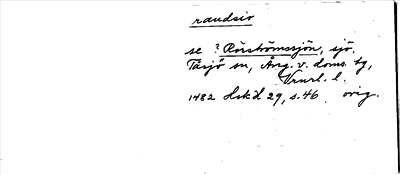 raudsio
se ? Rörströmssjön, sjö.
Tåsjö sn, Ång. v. doms. tg,
Vnrl. l.
1482 HskH 29, s. 46. orig.